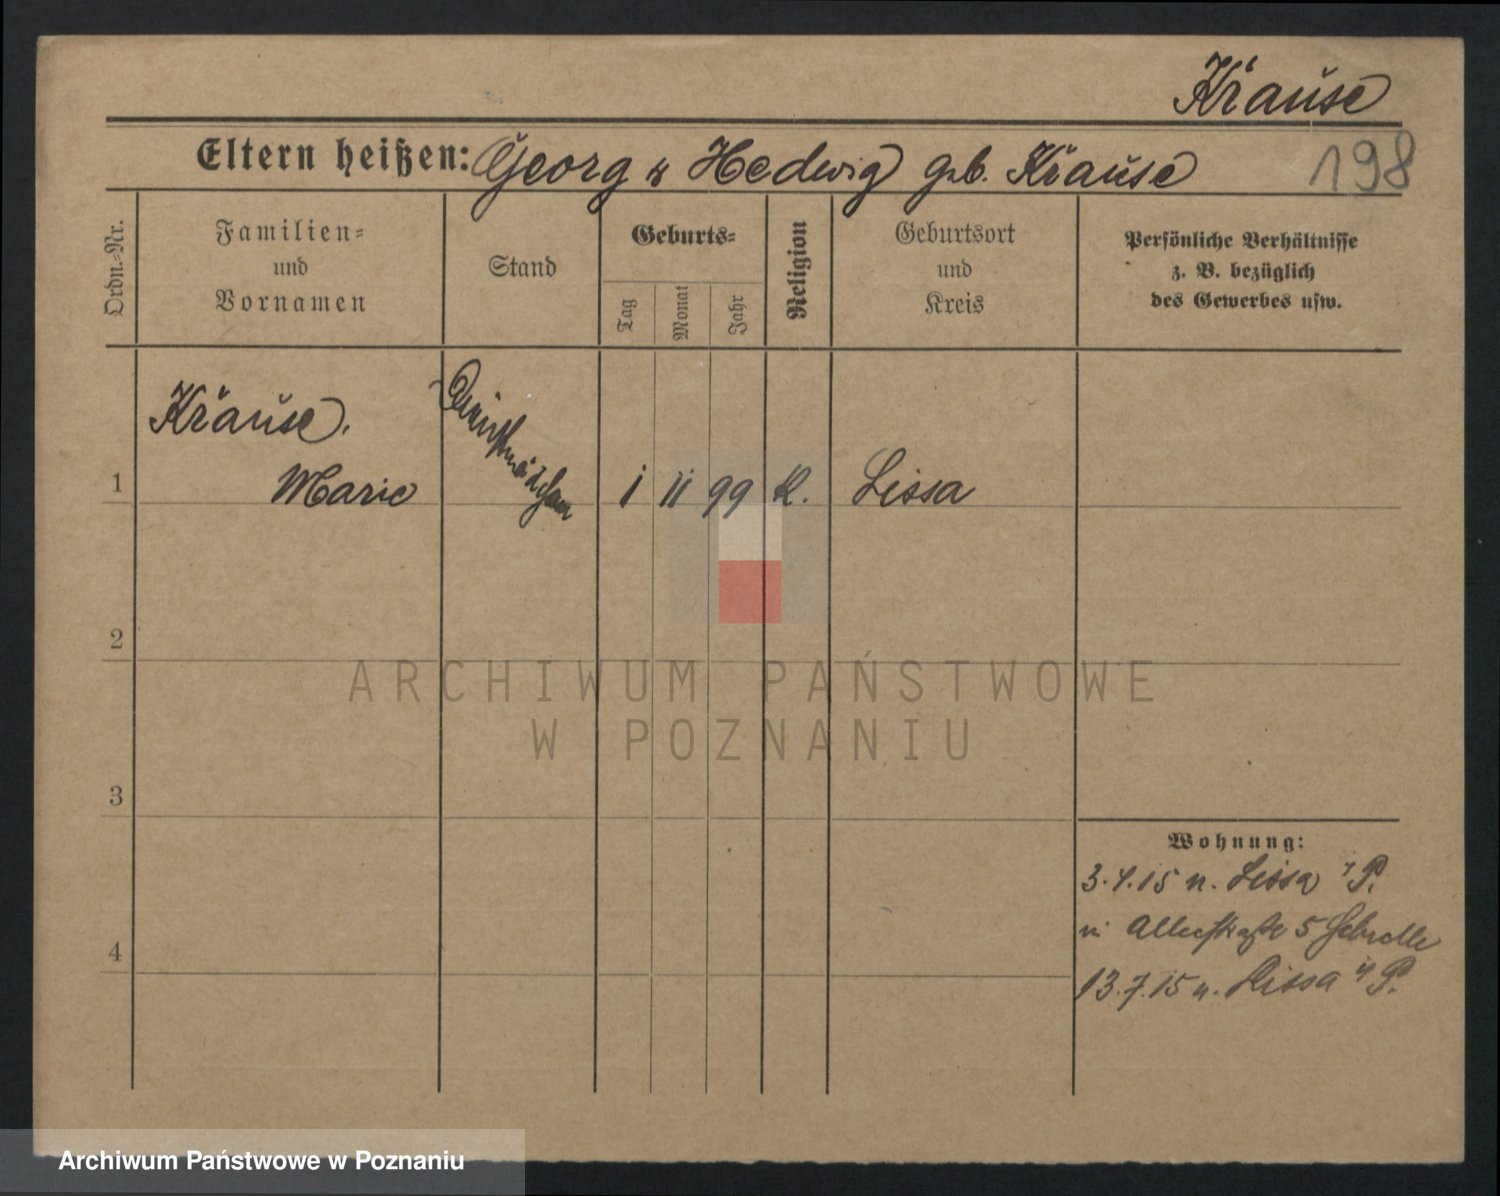 Krause
Eltern heißen: Georg u Hedwig geb. Krause
198
Ordn.-Nr.
Familien-
und
Vornamen
Stand
Geburts-
Tag
Monat
Jahr
Religion
Geburtsort
und
Kreis
Persönliche Verhältnisse
z. B. bezüglich
des Gewerbes usw.
Krause,
1 Marie Dienstmädchen 1 11 99 K. Lissa
2
ARCHIWUM PAŃSTWOWE
W POZNANIU
3
Wohnung:
3.4.15 n. Lissa i/P.
Alleestraße 5
4
13.7.15 n. Lissa i/P.
Archiwum Państwowe w Poznaniu